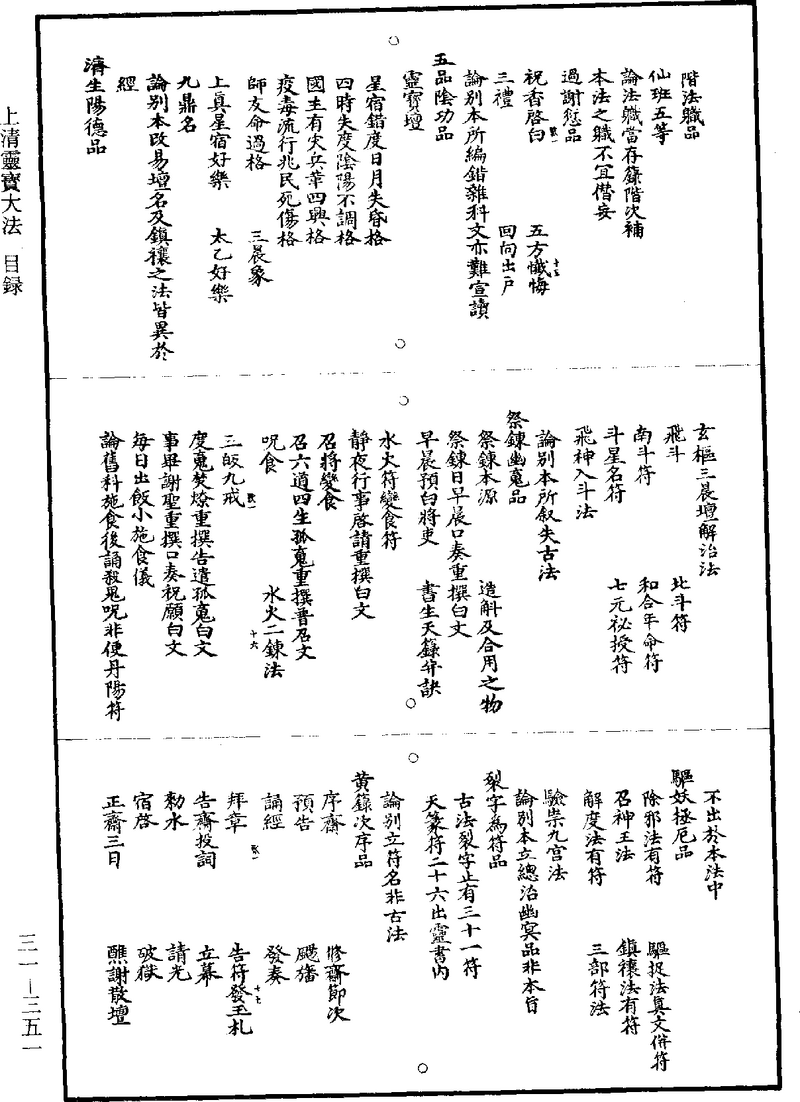 上清靈寶大法　目録
三一—三五一
階法職品
仙班五等
論法職當存籙階次補
本法之職不宜僭妄
過謝愆品
祝香啓白　五方懺悔
三禮　回向出戶
論別本所編錯雜科文亦難宣讀
五品陰功品
靈寶壇
星宿錯度日月失昏格
四時失度陰陽不調格
國主有災兵革四興格
疫毒流行兆民死傷格
師友命過格　三晨象
上真星宿好樂　太乙好樂
九鼎名
論別本改易壇名及鎮禳之法皆異於
經
濟生陽德品
玄樞三晨壇解治法
飛斗　北斗符
南斗符　和合年命符
斗星名符　七元祕授符
飛神入斗法
論別本所叙失古法
祭鍊幽魂品
祭鍊本源　造斛及合用之物
祭鍊日早晨口奏重撰白文
早晨預白將吏　書生天籙并訣
水火符變食符
靜夜行事啓請重撰白文
召將變食
召六道四生孤魂重撰普召文
呪食　水火二鍊法
三皈九戒
度魂焚燎重撰告遣孤魂白文
事畢謝聖重撰口奏祝願白文
每日出飯小施食儀
論舊科施食後誦殺鬼呪非便丹陽符
不出於本法中
驅妖拯厄品
除邪法有符　驅捉法真文併符
召神王法　鎮禳法有符
解度法有符　三部符法
驗祟九宮法
論別本立總治幽冥品非本旨
裂字為符品
古法裂字止有三十一符
天篆符二十六出靈書內
論別立符名非古法
黃籙次序品
序齋　修齋節次
預告　颺旛
誦經　發奏
拜章　告符發玉札
告齋投詞　立幕
勑水　請光
宿啓　破獄
正齋三日　醮謝散壇